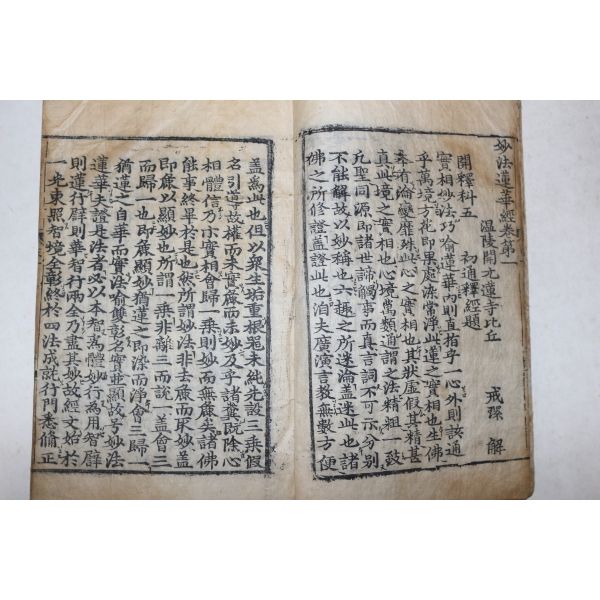 妙法蓮華經卷第一
溫陵開元蓮寺比丘 戒環 解
開釋科五 初通釋經題
實相妙法巧喻蓮華內則直指乎一心外則該通
乎萬境方花即果處染常淨此蓮之實相也生佛
本有淪變靡殊此心之實相也其狀虛假其精甚
真此境之實相也心境萬類通謂之法精粗一致
凡聖同源即諸世諦觸事而真言詞不可示分別
不能解故以妙稱也六趣之所迷淪盖迷此也諸
佛之所修證盖證此也洎夫廣演言教無數方便
盖為此也但以衆生垢重根器未純先設三乘假
名引導故權而未實麁而未妙及乎諸糞既除心
相體信乃示實相會歸一乘則妙而無麁矣諸佛
能事終畢於是也然所謂妙法非去麁而取妙盖
即麁以顯妙也所謂一乘非離三而說一盖會三
而歸一也即麁顯妙猶蓮之即染而淨會三歸一
猶蓮之自華而實法喻雙彰名實並顯故号妙法
蓮華夫證是法者必以本智為體妙行為用智辟
則蓮行辟則華智行兩全乃盡其妙故經文始於
一光東照智境全彰終於四法成就行門悉備正